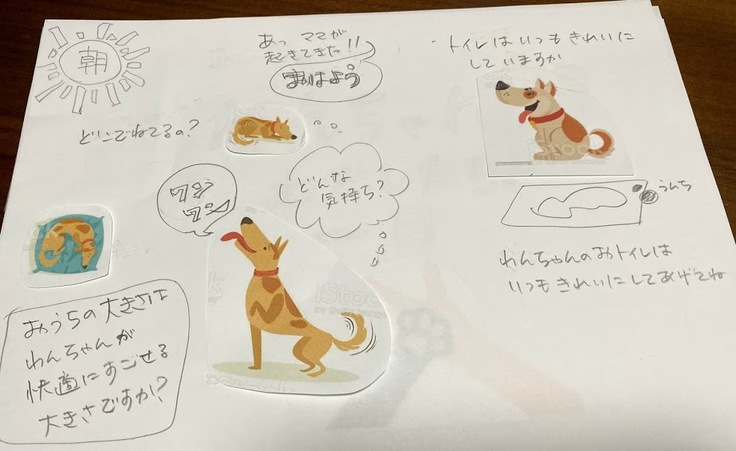 朝
あっ ママが
起きてきた!!
おはよう
どこでねてるの?
ワン
ワン
どんな
気持ち?
おうちの大きさは
わんちゃんが
快適にすごせる
大きさですか?
・トイレはいつもきれいに
していますか
うんち
わんちゃんのおトイレは
いつもきれいにしてあげてね
iStock